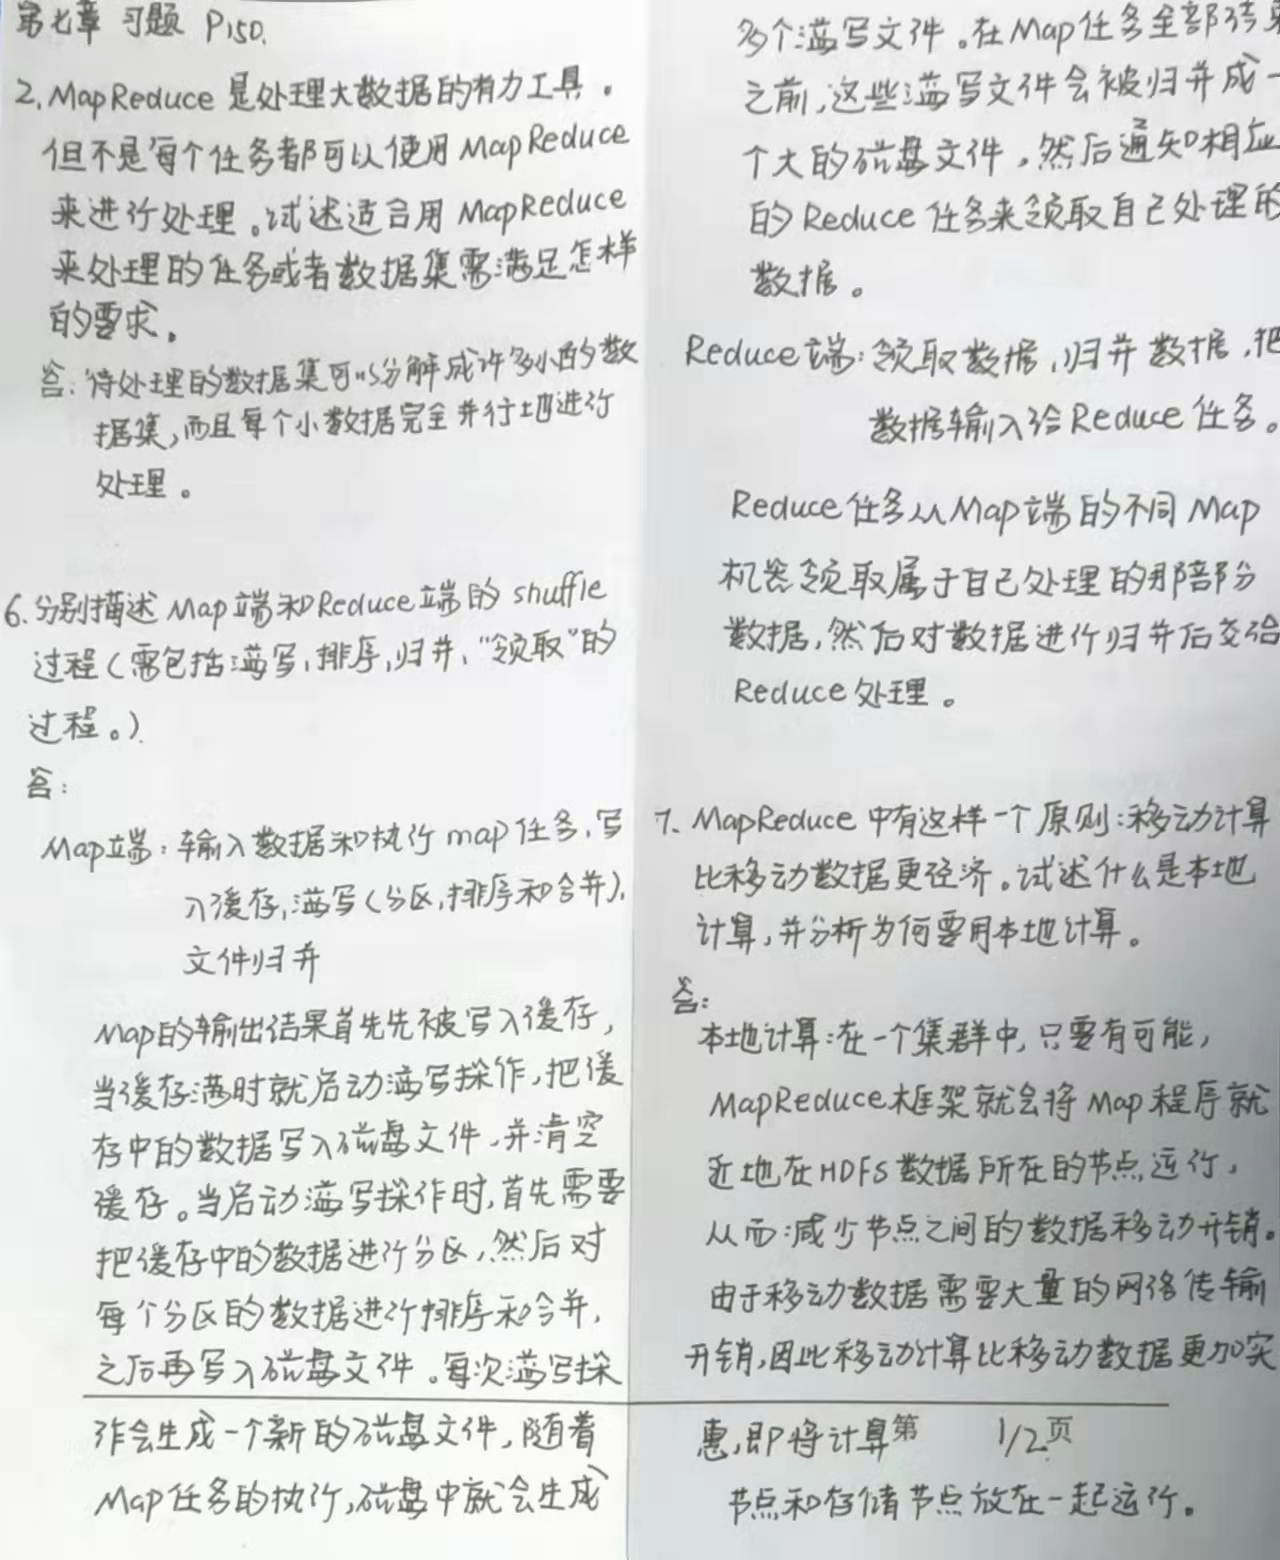 第七章 习题 P150.
2. MapReduce 是处理大数据的有力工具。
但不是每个任务都可以使用 MapReduce
来进行处理。试述适合用 MapReduce
来处理的任务或者数据集需满足怎样
的要求。
答: 待处理的数据集可以分解成许多小的数
据集,而且每个小数据完全并行地进行
处理。
6. 分别描述 Map 端和Reduce端的 shuffle
过程(需包括溢写,排序,归并,“领取”的
过程。)
答:
Map端: 输入数据和执行 map 任务,写
入缓存,溢写(分区,排序和合并),
文件归并
Map的输出结果首先先被写入缓存,
当缓存满时就启动溢写操作,把缓
存中的数据写入磁盘文件,并清空
缓存。当启动溢写操作时,首先需要
把缓存中的数据进行分区,然后对
每个分区的数据进行排序和合并,
之后再写入磁盘文件。每次溢写操
作会生成一个新的磁盘文件,随着
Map 任务的执行,磁盘中就会生成
多个溢写文件。在Map任务全部结束
之前,这些溢写文件会被归并成一
个大的磁盘文件,然后通知相应
的 Reduce 任务来领取自己处理的
数据。
Reduce端: 领取数据,归并数据,把
数据输入给 Reduce 任务。
Reduce 任务从Map端的不同 Map
机器领取属于自己处理的那部分
数据,然后对数据进行归并后交给
Reduce 处理。
7. MapReduce 中有这样一个原则:移动计算
比移动数据更经济。试述什么是本地
计算,并分析为何要用本地计算。
答:
本地计算:在一个集群中,只要有可能,
MapReduce框架就会将 Map 程序就
近地在HDFS数据所在的节点运行,
从而减少节点之间的数据移动开销。
由于移动数据需要大量的网络传输
开销,因此移动计算比移动数据更加实
惠,即将计算第 1/2页
节点和存储节点放在一起运行。